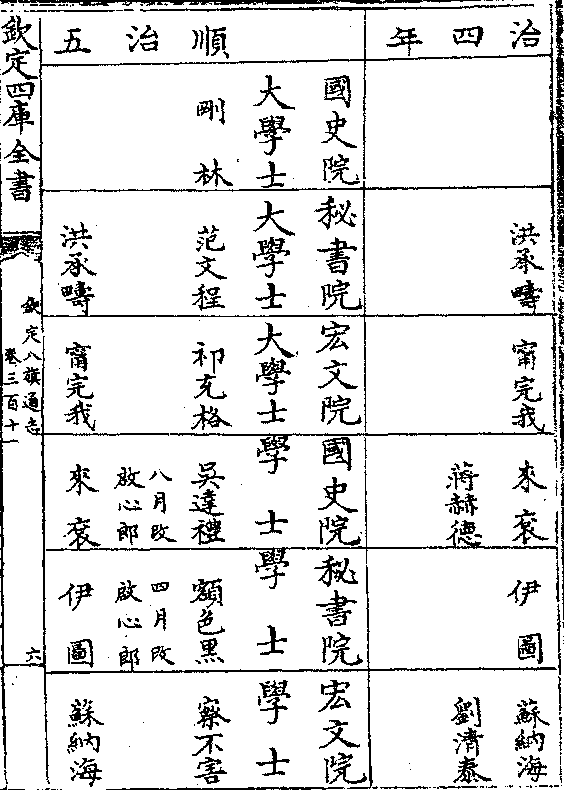 治四年
洪承疇
甯完我
來袞
蔣赫德
伊圖
蘇納海
劉清泰
順治五
國史院
大學士
剛林
秘書院
大學士
范文程
洪承疇
宏文院
大學士
祁充格
甯完我
國史院
學士
吳達禮
八月改
啟心郎
來袞
秘書院
學士
額色黑
四月改
啟心郎
伊圖
宏文院
學士
察不害
蘇納海
欽定四庫全書
欽定八旗通志
卷三百十一
六